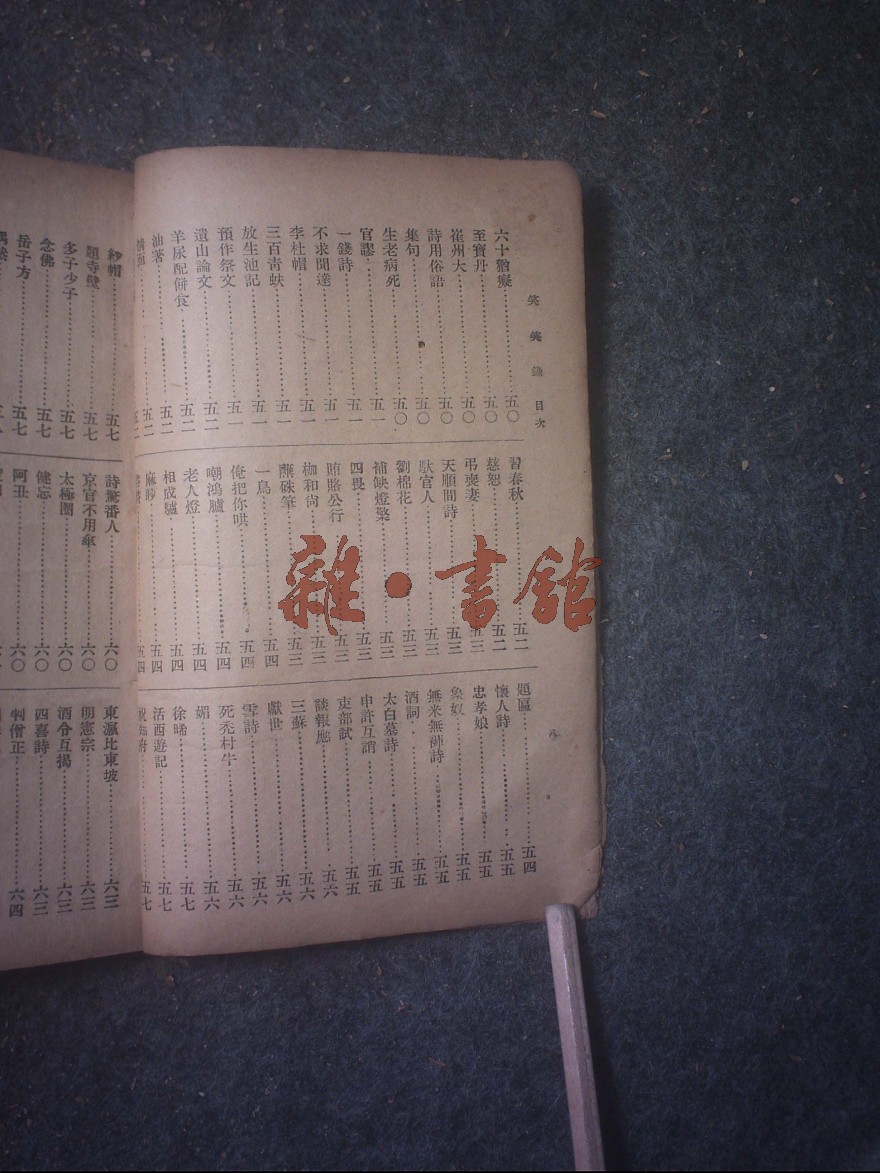 笑笑錄 目次
六十猶癡……五〇
至寶丹……五〇
崔州大……五〇
詩用俗語……五〇
集句……五〇
生老病死……五〇
官謬……五一
一錢詩……五一
不求聞達……五一
李杜帽……五一
三百青蚨……五一
放生池記……五一
預作祭文……五一
遺山論文……五二
羊尿配餅食……五二
油著……五二
習春秋……五二
慈恕……五二
弔喪妻……五三
天順間詩……五三
馱官人……五三
劉棉花……五三
補缺燈檠……五三
四畏……五三
賄賂公行……五三
枷和尚……五三
蘸硃筆……五三
一鳥……五四
俺把你哄……五四
嘲鴻臚……五四
老人燈……五四
相成驢……五四
麻眇……五四
題區……五四
懷人詩……五五
忠孝娘……五五
象奴……五五
無米無褲詩……五五
酒詞……五五
太白墓詩……五五
申許互謂……五五
吏部試……五五
談報應……五六
三蘇……五六
獻世……五六
雪詩……五六
死禿村牛……五六
媚……五六
徐晞……五七
活西遊記……五七
紗帽……五七
題寺壁……五七
多子少子……五七
念佛……五七
岳子方……五七
詩驚番人……六〇
京官不用傘……六〇
太極圈……六〇
健忘……六〇
阿丑……六〇
東瀛比東坡……六三
明憲宗……六三
酒令互揭……六三
四喜詩……六三
判僧正……六四
雜·書館